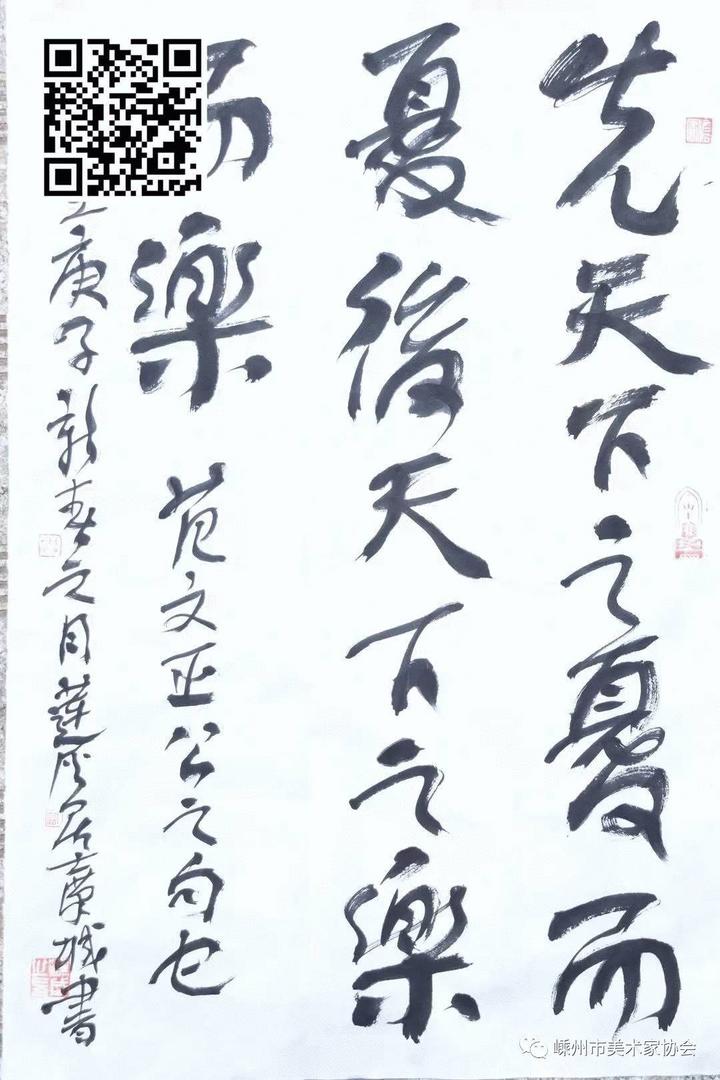 先天下之憂而
憂後天下之樂
而樂
范文正公之句也
庚子新春之月蓮 居 城書
嵊州市美术家协会